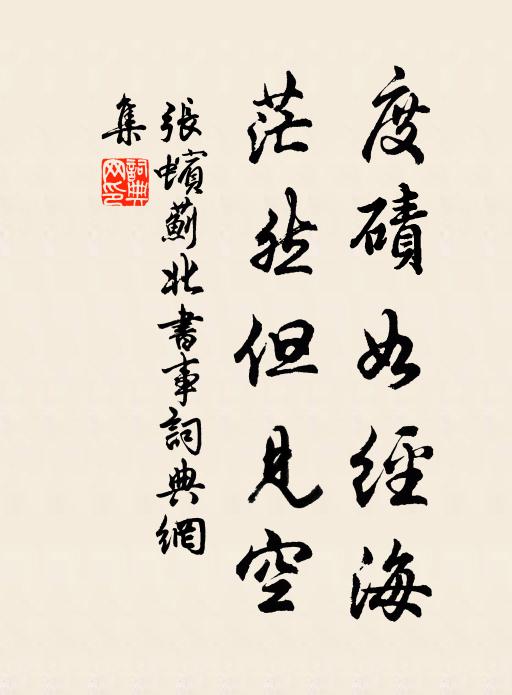 度磧如經海
茫然但見空
張蠙薊北書事詞典網
集
詞典網印